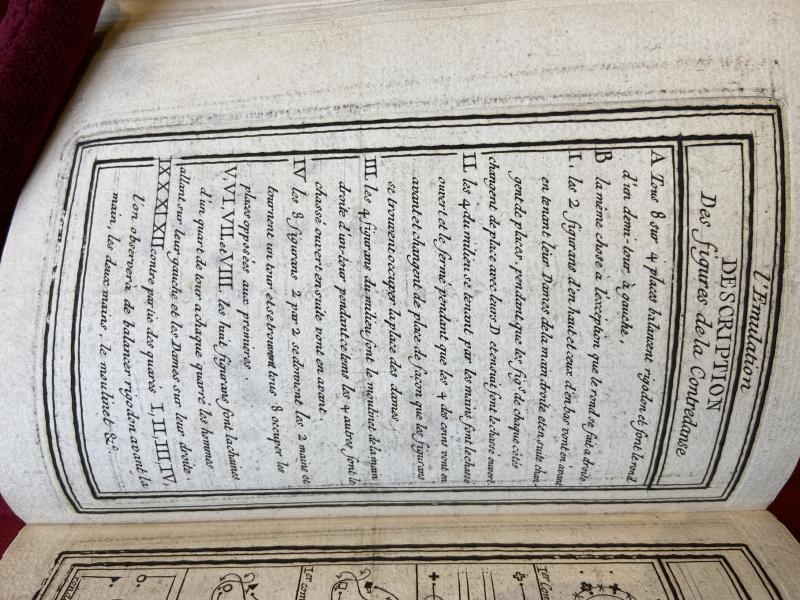 l'Emulation
DESCRIPTION
Des figures de la Contredanse
A Tous 8 sur 4 places balancent rigodon et font le rond
d'un demi-tour, à gauche,
B la même chose à l'exception que le rond se fait a droite.
I. les 2 figurans d'en haut et ceux d'en bas vont en avant
en tenant leur Dames de la main droite et ensuite chan-
gent de places pendant que les fig.s de chaque côtés
changent de place avec leurs D et ensuit font le chasse ouvert
II. les 4 du milieu se tenant par les mains font le chassé
ouvert et le fermé pendant que les 4 des coins vont en
avant et changent de place de façon que les figurans
se trouvent occuper la place des dames.
III. les 4 figurans du milieu font le moulinet de la main
droite d'un tour pendant ce tems les 4 autres font le
chassé ouvert ensuite vont en avant.
IV les 8 figurans 2 par 2 se donnent les 2 mains et
tournent un tour et se trouvent tous 8 occuper les
places opposées aux premieres.
V, VI, VII et VIII. les huit figurans font la chaines
d'un quart de tour a chaque quarré les hommes
allant sur leur gauche et les Dames sur leur droite
IX X XI XII contre partie des quarés I, II, III, IV.
l'on observera de balancer rigodon avant la
main, les deux mains, le moulinet &c.
1er Cont
1er Con